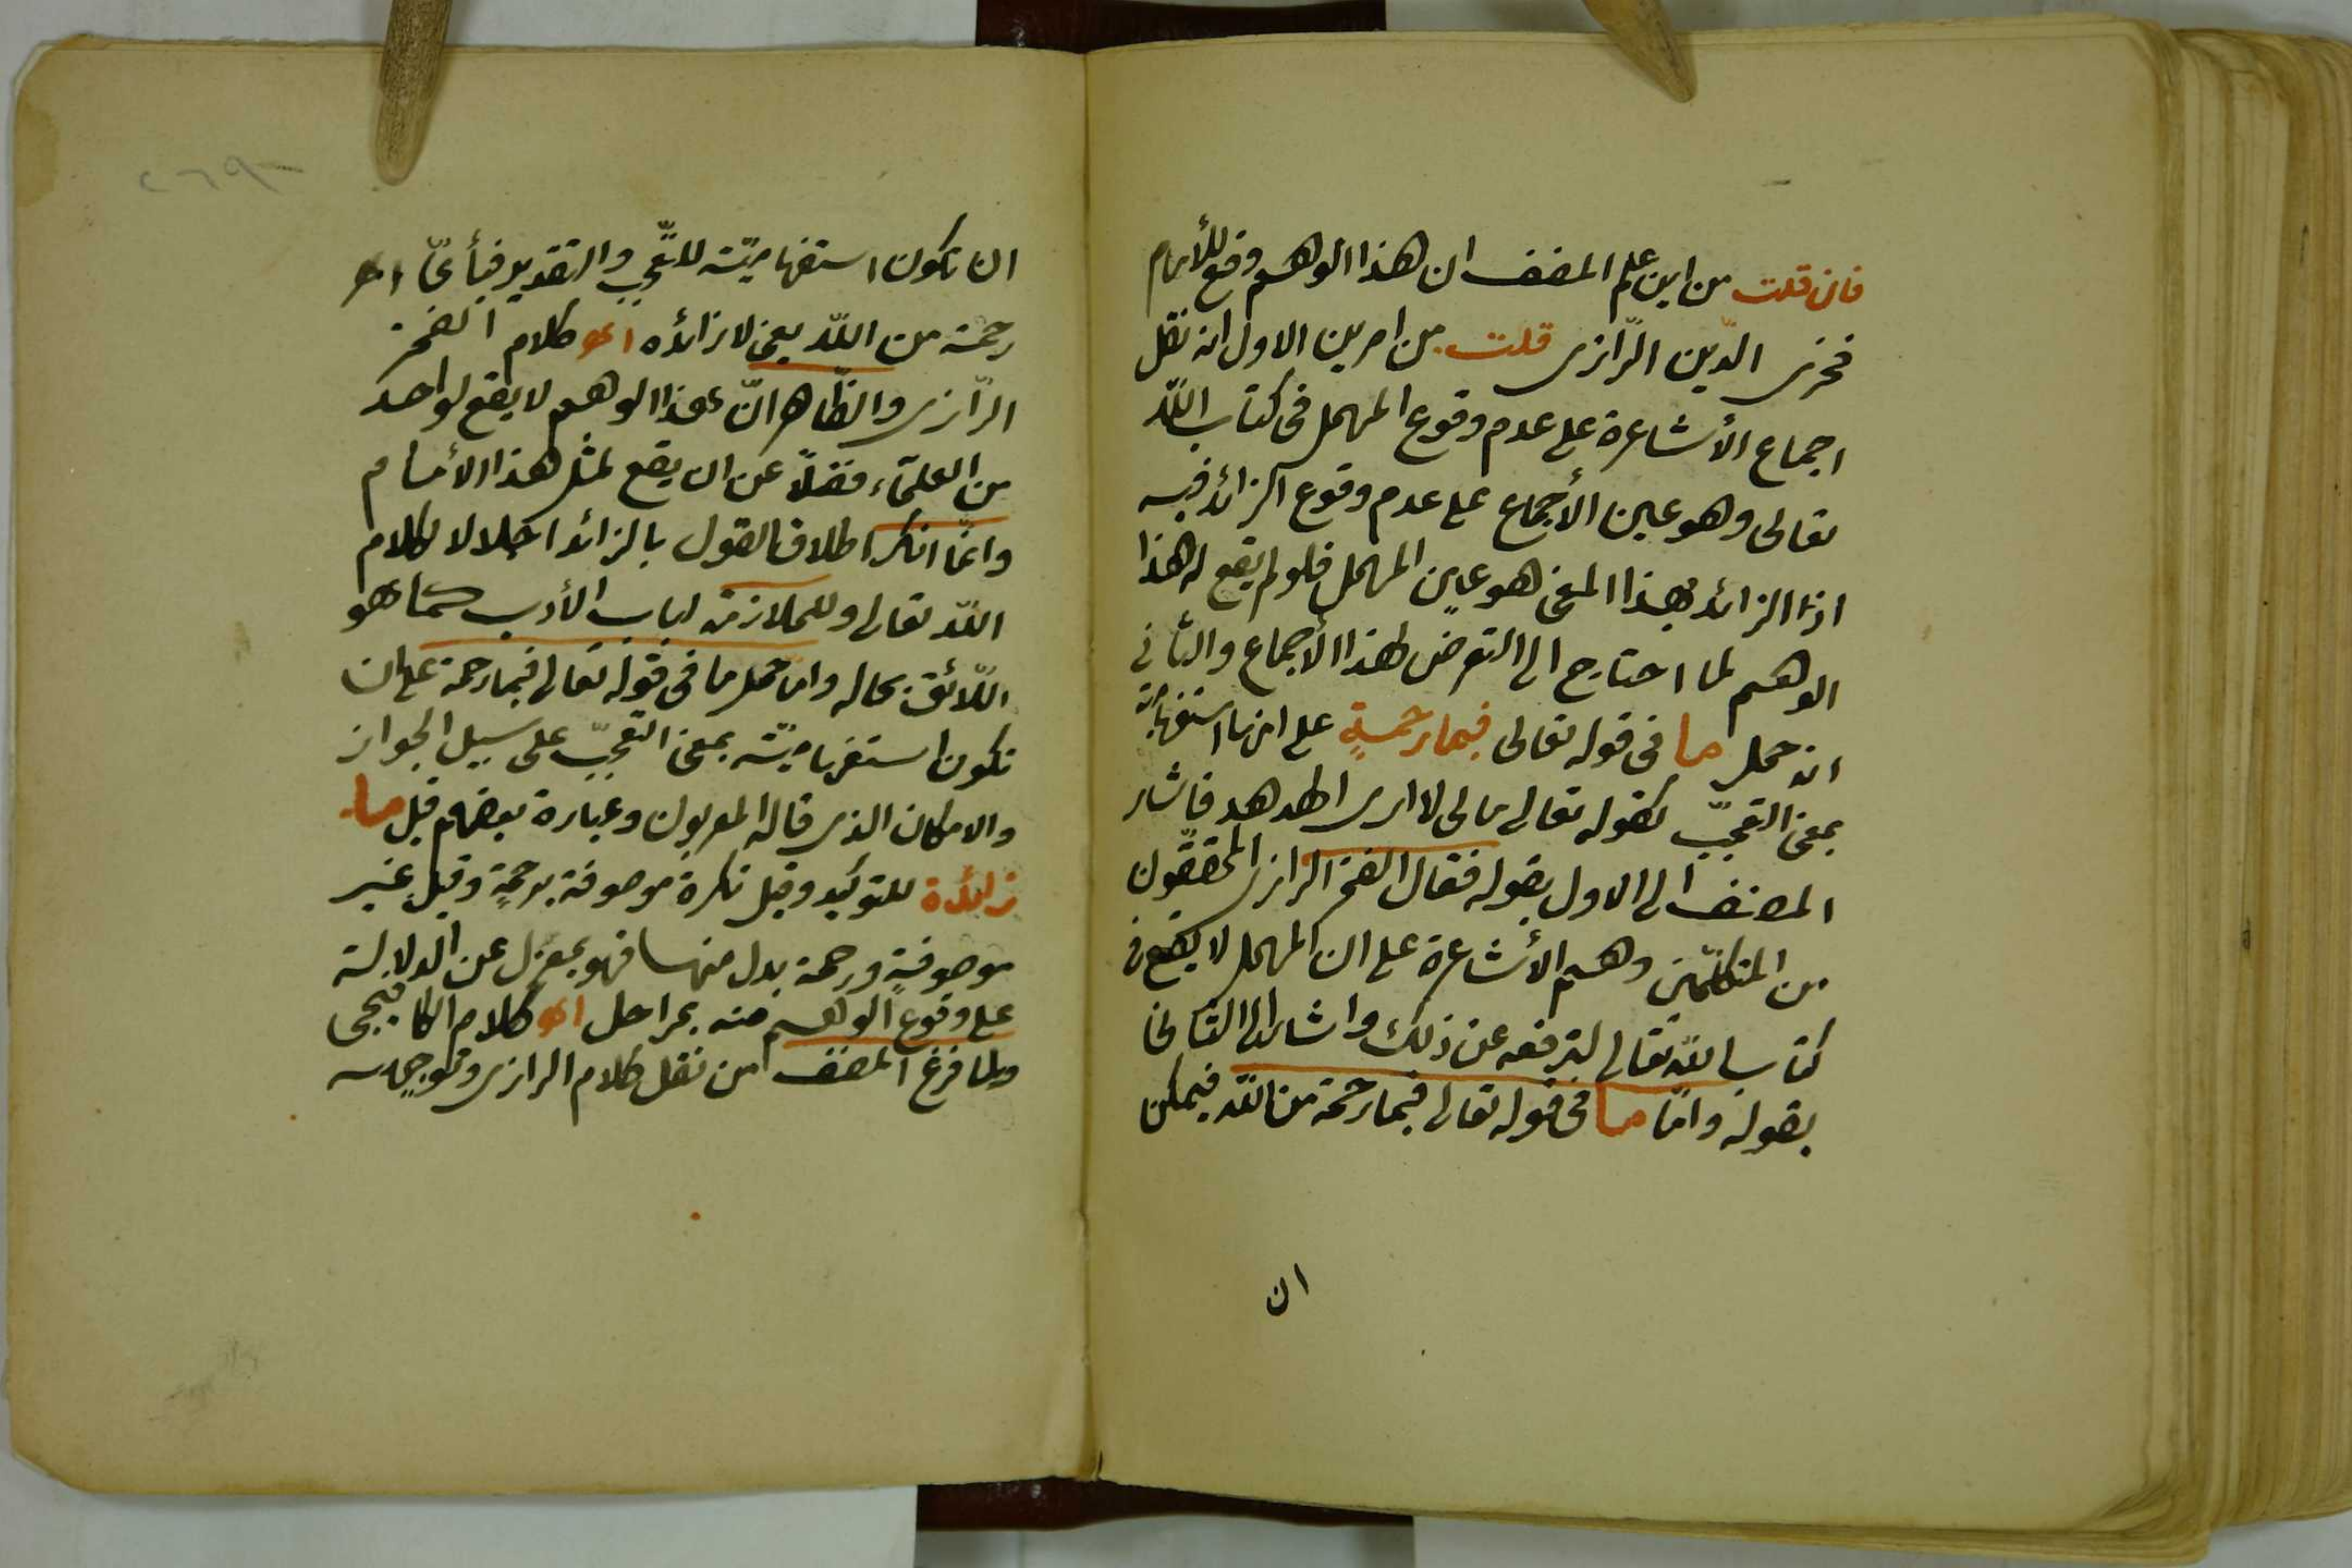 فان قلت من اين علم المصنف ان هذا الوهم وقع للأمام
فخرى الدّين الرّازى قلت من امرين الاول انه نقل
اجماع الأشاعرة على عدم وقوع المهمل فى كتاب اللّه
تعالى وهو عين الأجماع على عدم وقوع الزائد فيه
اذا الزائد بهذا المعنى هو عين المهمل فلو لم يقع له هذا
الوهم لما احتاج الى التعرض لهذا الأجماع والثانى
انه حمل ما فى قوله تعالى فبما رحمةٍ على انها استفهامية
بمعنى التعجّب كقوله تعالى مالى لا ارى الهدهد فاشار
المصنف الى الاول بقوله فقال الفخر الرازى المحققّون
من المتكلّمين وهم الأشاعرة على ان المهمل لا يقع فى
كتاب اللّه تعالى لترفعه عن ذلك واشار الى الثانى
بقوله وامّا ما فى قوله تعالى فبما رحمة من اللّه فيمكن
ان
ان تكون استفهاميّة للتّعجّب والتقدير فبأىّ
رحمة من اللّه يعنى لا زائده اهـ كلام الفخر
الرّازى والظّاهر انّ هذا الوهم لا يقع لواحد
من العلمآء فضلاً عن ان يقع لمثل هذا الأمام
وانّما انكر اطلاق القول بالزائد اجلالا لكلام
اللّه تعالى وللملازمة لباب الأدب كما هو
اللّائق بحاله وامّا حمل ما فى قوله تعالى فبما رحمة على ان
تكون استفهاميّة بمعنى التعجّب على سبيل الجواز
والامكان الذى قاله المعربون وعبارة بعضهم قيل ما
زائدة للتوكيد وقيل نكرة موصوفة برحمةٍ وقيل غير
موصوفةٍ ورحمة بدل منها فهو بمعزل عن الدلالة
على وقوع الوهم منه بمراحل اهـ كلام الكافيجى
ولما فرغ المصنف من نقل كلام الرازى وتوجيهه